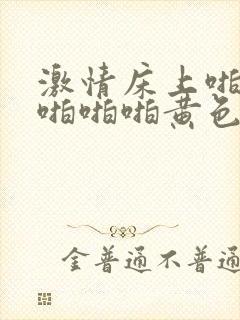 激情床上啪
啪啪啪黄色
金普通不普通